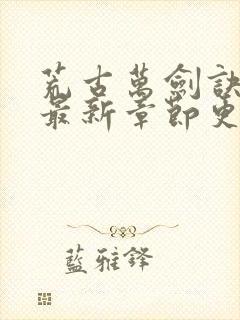 荒古萬劍訣
最新章節更
藍雅鋒